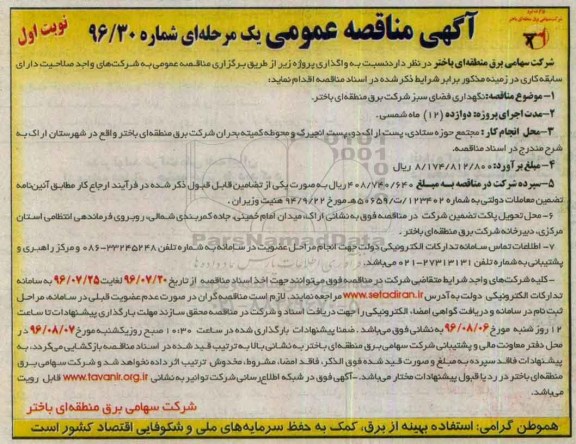 آگهی مناقصه عمومی یک مرحله‌ای شماره ۹۶/۳۰
نوبت اول
شرکت سهامی برق منطقه‌ای باختر در نظر دارد نسبت به واگذاری پروژه زیر از طریق برگزاری مناقصه عمومی به شرکت‌های واجد صلاحیت دارای
سابقه کاری در زمینه مذکور برابر شرایط ذکر شده در اسناد مناقصه اقدام نماید:
۱-موضوع مناقصه: نگهداری فضای سبز شرکت برق منطقه‌ای باختر.
۲-مدت اجرای پروژه: دوازده (۱۲) ماه شمسی.
۳-محل انجام کار: مجتمع حوزه ستادی، پست اراک دو، پست انجیرک و محوطه کمیته بحران شرکت برق منطقه‌ای باختر واقع در شهرستان اراک به
شرح مندرج در اسناد مناقصه.
۴-مبلغ برآورد: ۸/۱۷۴/۸۱۲/۸۰۰ ریال
۵-سپرده شرکت در مناقصه به مبلغ ۴۰۸/۷۴۰/۶۴۰ ریال به صورت یکی از تضامین قابل قبول ذکر شده در فرآیند ارجاع کار مطابق آئین‌نامه
تضمین معاملات دولتی به شماره ۱۲۳۴۰۲/ت۵۰۶۵۹هـ مورخ ۹۴/۹/۲۲ هیئت وزیران.
۶-محل تحویل پاکت تضمین شرکت در مناقصه فوق به نشانی اراک، میدان امام خمینی، جاده کمربندی شمالی، روبروی فرماندهی انتظامی استان
مرکزی، دبیرخانه شرکت برق منطقه‌ای باختر.
۷-اطلاعات تماس سامانه تدارکات الکترونیکی دولت جهت انجام مراحل عضویت در سامانه به شماره تلفن ۳۳۲۴۵۲۴۸-۰۸۶ و مرکز راهبری و
پشتیبانی به شماره تلفن ۲۷۳۱۳۱۳۱-۰۲۱ می‌باشد.
-کلیه شرکت‌های واجد شرایط متقاضی شرکت در مناقصه فوق می‌توانند جهت اخذ اسناد مناقصه از تاریخ ۹۶/۰۷/۲۰ لغایت ۹۶/۰۷/۲۵ به سامانه
تدارکات الکترونیکی دولت به آدرس www.setadiran.ir مراجعه نمایند. لازم است مناقصه‌گران در صورت عدم عضویت قبلی در سامانه، مراحل
ثبت نام در سامانه و دریافت گواهی امضا، الکترونیکی را جهت دریافت اسناد و شرکت در مناقصه محقق سازند مهلت بارگذاری پیشنهادات تا ساعت
۱۲ روز شنبه مورخ ۹۶/۰۸/۰۶ به نشانی فوق می‌باشد. ضمنا پیشنهادات بارگذاری شده در ساعت ۱۰:۳۰ صبح روز یکشنبه مورخ ۹۶/۰۸/۰۷ در
محل دفتر معاونت مالی و پشتیبانی شرکت سهامی برق منطقه‌ای باختر به نشانی بالا به ترتیب قید شده در اسناد مناقصه بازگشایی می‌گردد، به
پیشنهادات فاقد سپرده به مبلغ و صورت قید شده فوق الذکر، فاقد امضا، مشروط، مخدوش ترتیب اثر داده نخواهد شد و شرکت سهامی برق
منطقه‌ای باختر در رد یا قبول پیشنهادات مختار می‌باشد.-آگهی فوق در شبکه اطلاع‌رسانی شرکت توانیر به نشانی www.tavanir.org.ir قابل رویت
می‌باشد.
شرکت سهامی برق منطقه‌ای باختر
هموطن گرامی: استفاده بهینه از برق، کمک به حفظ سرمایه‌های ملی و شکوفایی اقتصاد کشور است